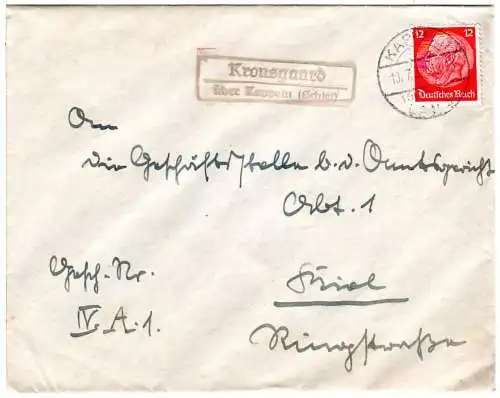 Kronsgaard
über Kappeln (Schlei)
12 12
Deutsches Reich
An
die Geschäftsstelle b. d. Amtsgericht
Abt. 1
Gesch.-Nr.
IV. A. 1.
Kiel
Ringstraße